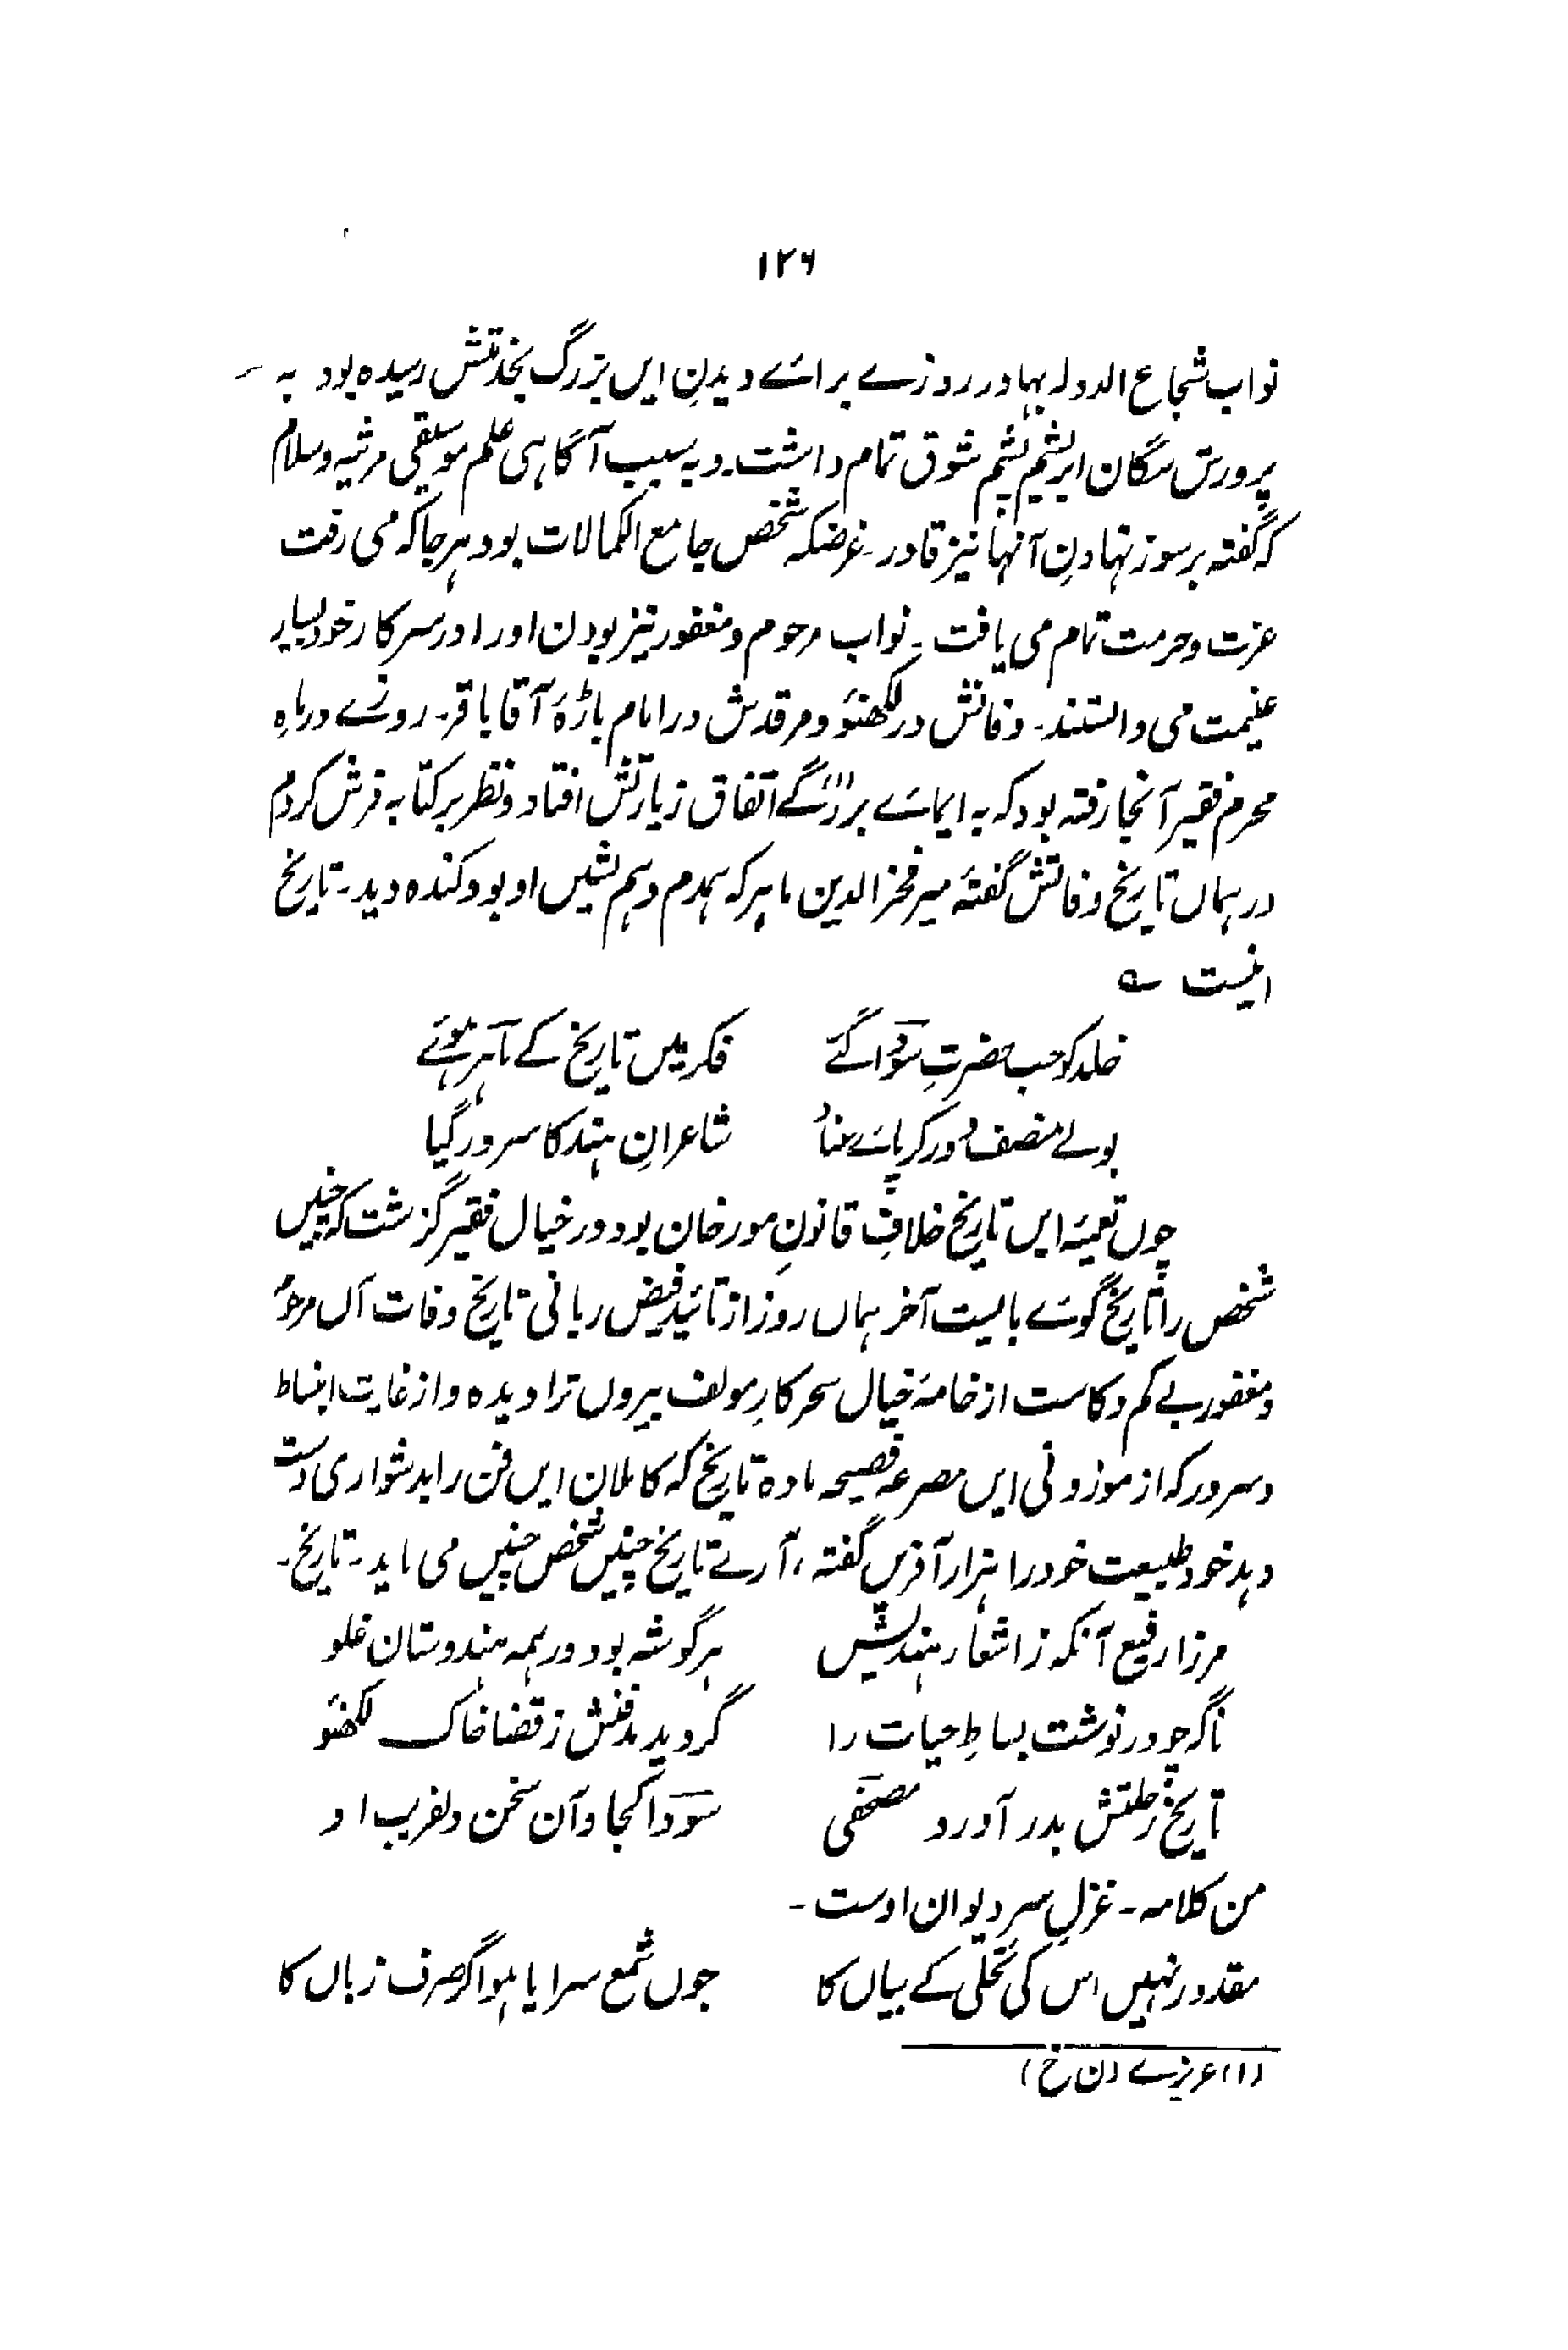 ۱۲۶
نواب شجاع الدولہ بہادر روزے برائے دیدنِ ایں بزرگ بخدمتش رسیدہ بود بہ
پرورش سگان ابریشم پشم شوق تمام داشت۔ و بہ سبب آگاہی علم موسیقی مرثیہ و سلام
کہ گفتہ بر سوز نہادنِ آنہا نیز قادر۔ غرضکہ شخص جامع الکمالات بود ہر جا کہ می رفت
عزت و حرمت تمام می یافت۔ نواب مرحوم و مغفور نیز بودن او را در سرکار خود بسیار
غنیمت می دانستند۔ وفاتش در لکھنؤ و مرقدش در امام باڑۂ آقا باقر۔ روزے در ماہِ
محرم فقیر آنجا رفتہ بود کہ بہ ایمائے بزرگے(۱) اتفاق زیارتش افتاد و نظر بر کتابہ فرش کردم
در ہماں تاریخ وفاتش گفتۂ میر فخر الدین ماہر کہ ہمدم و ہم نشیں او بود کندہ دید۔ تاریخ
اینست ؎
خلد کو جب حضرتِ سوداؔ گئے فکر میں تاریخ کے ماہرؔ ہوئے
بولے منصف دور کر پائے عناد شاعرانِ ہند کا سرور گیا
چوں تعمیۂ ایں تاریخ خلافِ قانونِ مورخان بود در خیال فقیر گزشت کہ چنیں
شخص را تاریخ گوئے بایست آخر ہماں روز از تائید فیض ربانی تاریخ وفات آں مرحوم
و مغفور بے کم و کاست از خامۂ خیال سحر کارِ مولف بیروں تراویدہ و از غایت انبساط
و سرور کہ از موزونی ایں مصرعہ فصیحہ مادہ تاریخ کہ کاملان ایں فن را بدشواری دست
دہد خود طبیعت خود را ہزار آفریں گفتہ، آرے تاریخ چنیں شخص چنیں می باید۔ تاریخ۔
مرزا رفیع آنکہ ز اشعار ہندیش ہر گوشہ بود در ہمہ ہندوستان غلو
ناگہ چو در نوشت بساطِ حیات را گردید مدفنش ز قضا خاک لکھنؤ
تاریخ رحلتش بدر آورد مصحفیؔ سوداؔ کجا و آن سخن دلفریب او
من کلامہ۔ غزلِ سرِ دیوان اوست۔
مقدور نہیں اس کی تجلی کے بیاں کا جوں شمع سراپا ہو اگر صرف زباں کا
(۱) عزیزے (ن خ)